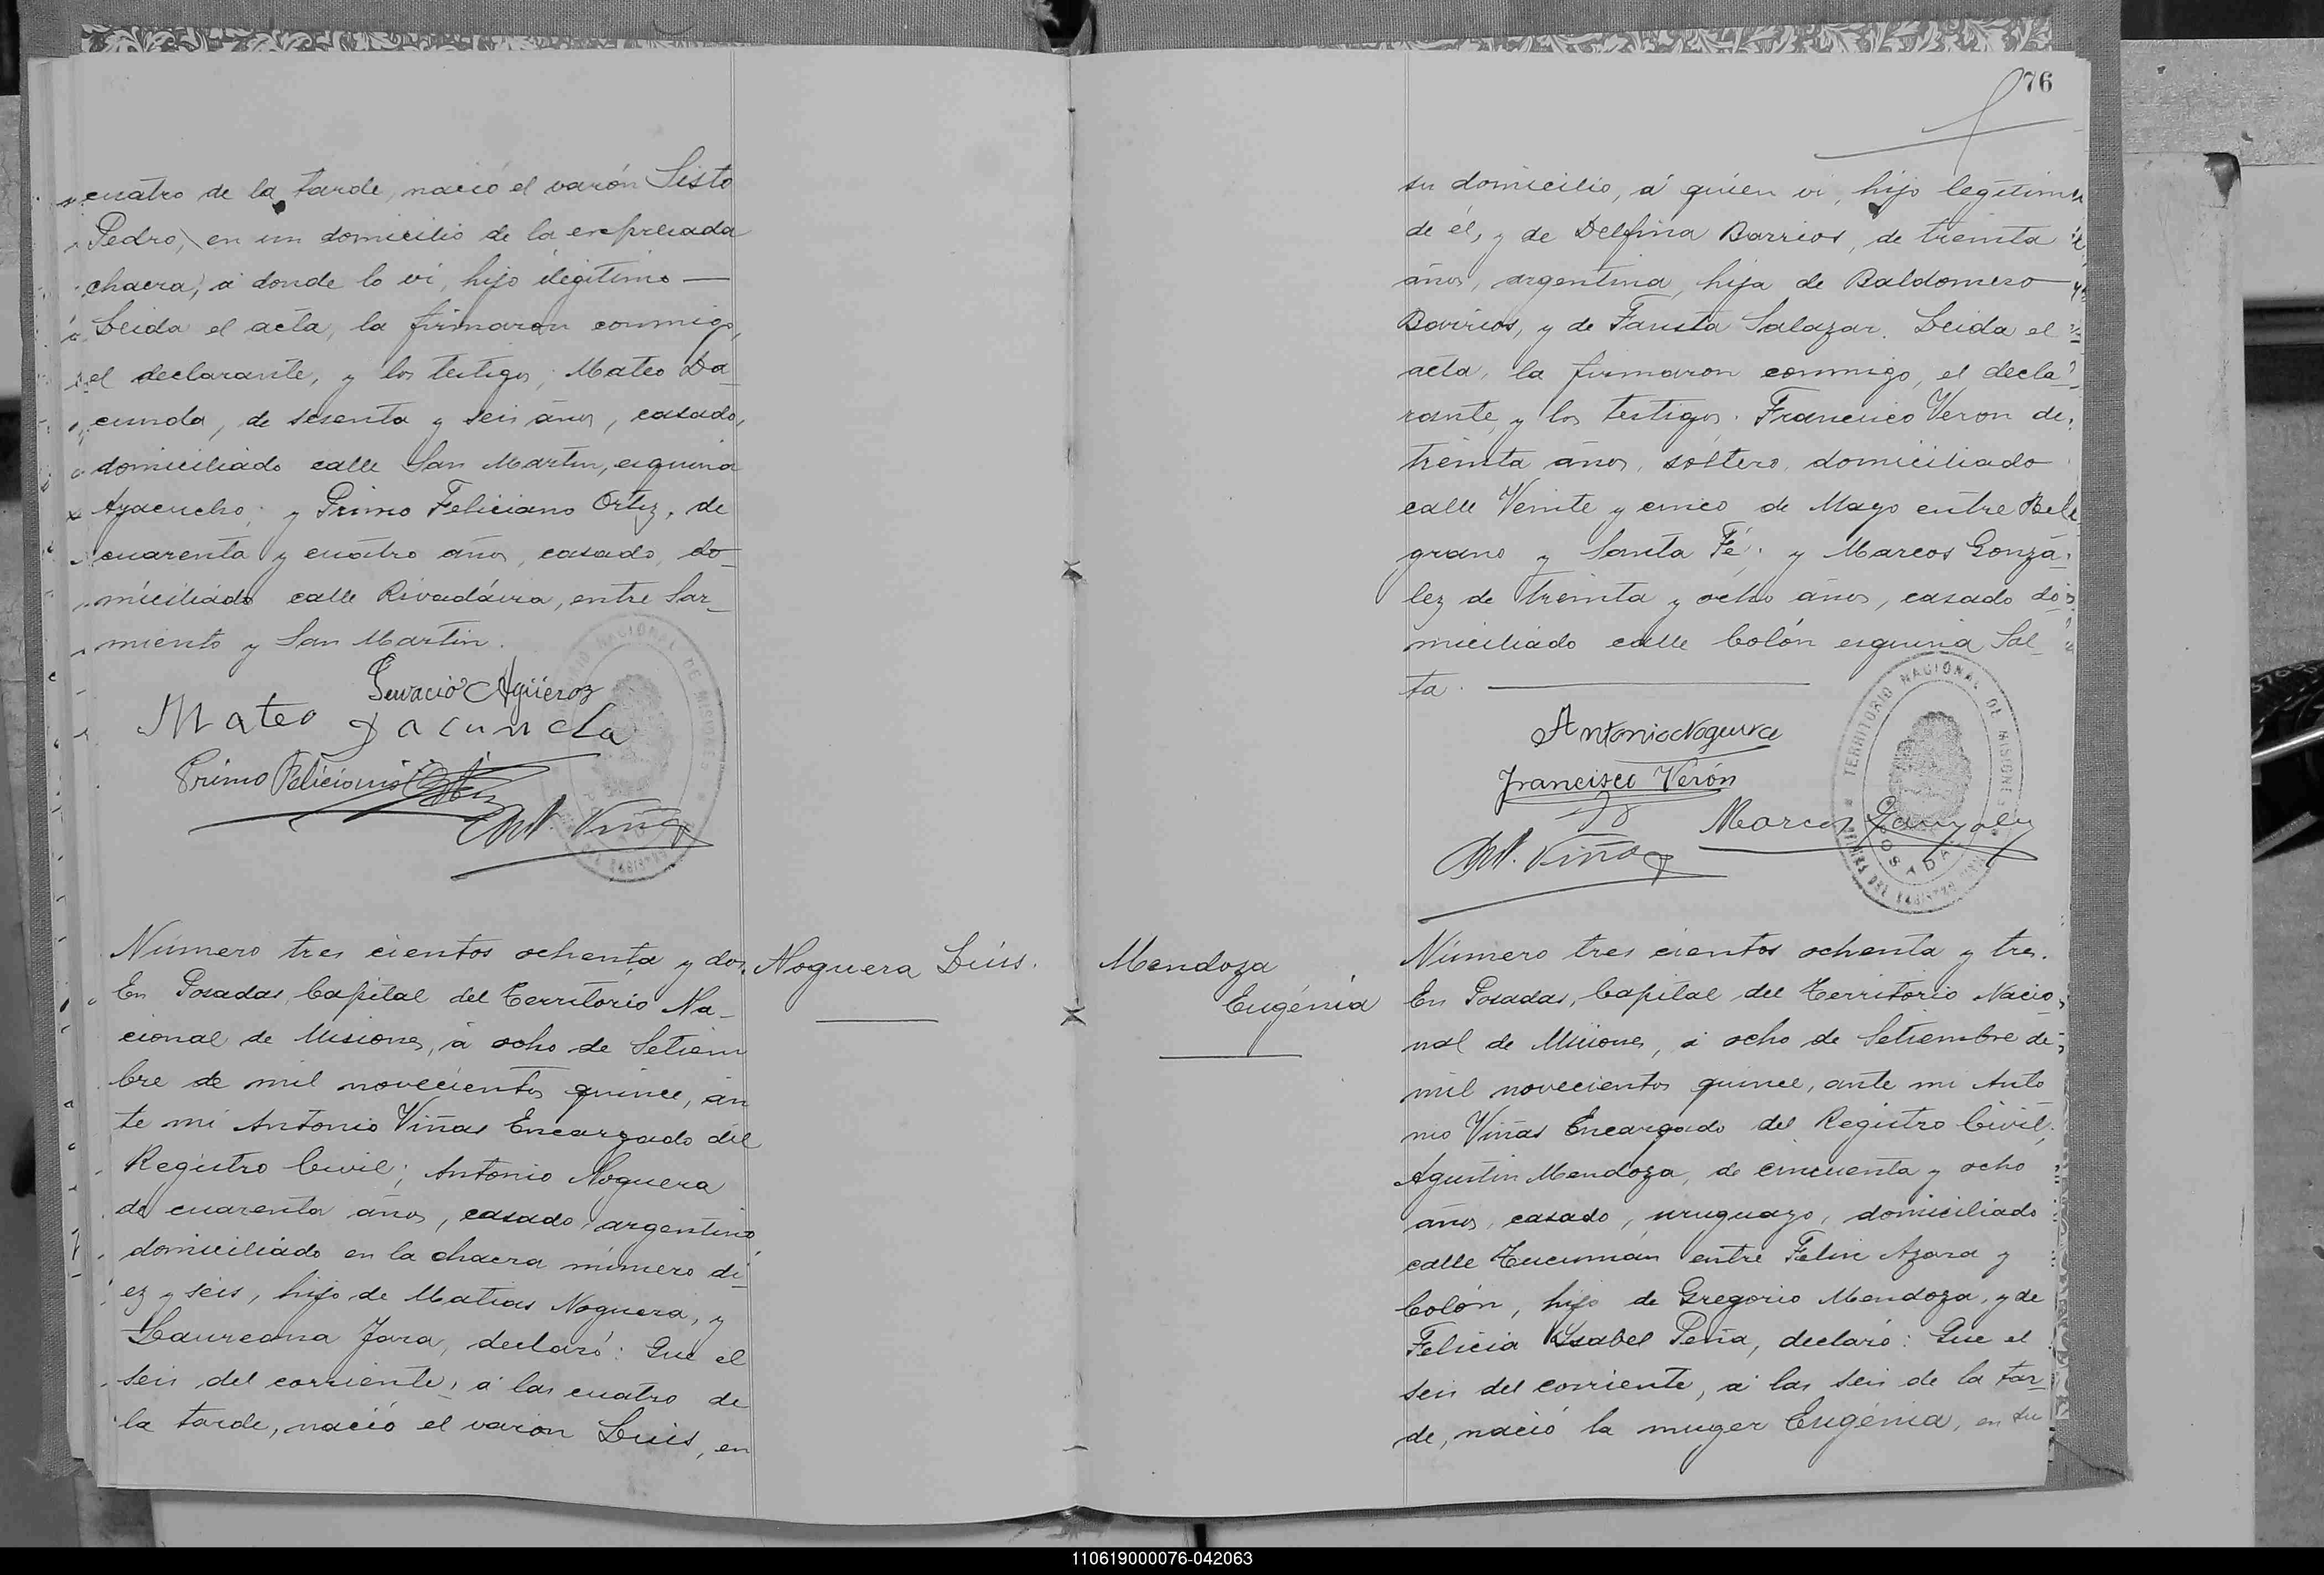 cuatro de la tarde, nació el varón Sisto
Pedro, en un domicilio de la expresada
chacra, á donde lo vi, hijo ilegítimo —
Leida el acta, la firmaron conmigo,
el declarante, y los testigos, Mateo Da-
cunda, de sesenta y seis años, casado,
domiciliado calle San Martin, esquina
Ayacucho; y Primo Feliciano Ortiz, de
cuarenta y cuatro años, casado, do-
miciliado calle Rivadávia, entre Sar-
miento y San Martin.
Servacio Agüeroz
Mateo Dacunda
Primo Feliciano Ortiz
Ant. Viñas
Número tres cientos ochenta y dos.
Noguera Luis.
En Posadas, Capital del Territorio Na-
cional de Misiones, á ocho de Setiem
bre de mil novecientos quince, an
te mi Antonio Viñas Encargado del
Registro Civil; Antonio Noguera
de cuarenta años, casado, argentino,
domiciliado en la chacra número di-
ez y seis, hijo de Matias Noguera, y
Laureana Jara, declaró: Que el
seis del corriente, á las cuatro de
la tarde, nació el varon Luis, en
76
su domicilio, á quien vi, hijo legítimo
de él, y de Delfina Barrios, de treinta
años, argentina, hija de Baldomero
Barrios, y de Fausta Salazar. Leida el
acta, la firmaron conmigo, el decla-
rante, y los testigos. Francisco Veron de
treinta años, soltero, domiciliado
calle Veinte y cinco de Mayo entre Bel
grano y Santa Fé; y Marcos Gonzá-
lez de treinta y ocho años, casado do-
miciliado calle Colón esquina Sal-
ta.
TERRITORIO NACIONAL DE MISIONES
POSADAS
Antonio Noguera
Francisco Verón
Marcos Gonzalez
Ant. Viñas
Mendoza
Eugénia
Número tres cientos ochenta y tres.
En Posadas, Capital del Territorio Nacio-
nal de Misiones, á ocho de Setiembre de
mil novecientos quince, ante mi Anto
nio Viñas Encargado del Registro Civil;
Agustin Mendoza, de cincuenta y ocho
años, casado, uruguayo, domiciliado
calle Tucumán entre Felix Azara y
Colón, hijo de Gregorio Mendoza, y de
Felicia Ysabel Peña, declaró: Que el
seis del corriente, á las seis de la tar-
de, nació la muger Eugénia, en su
110619000076-042063